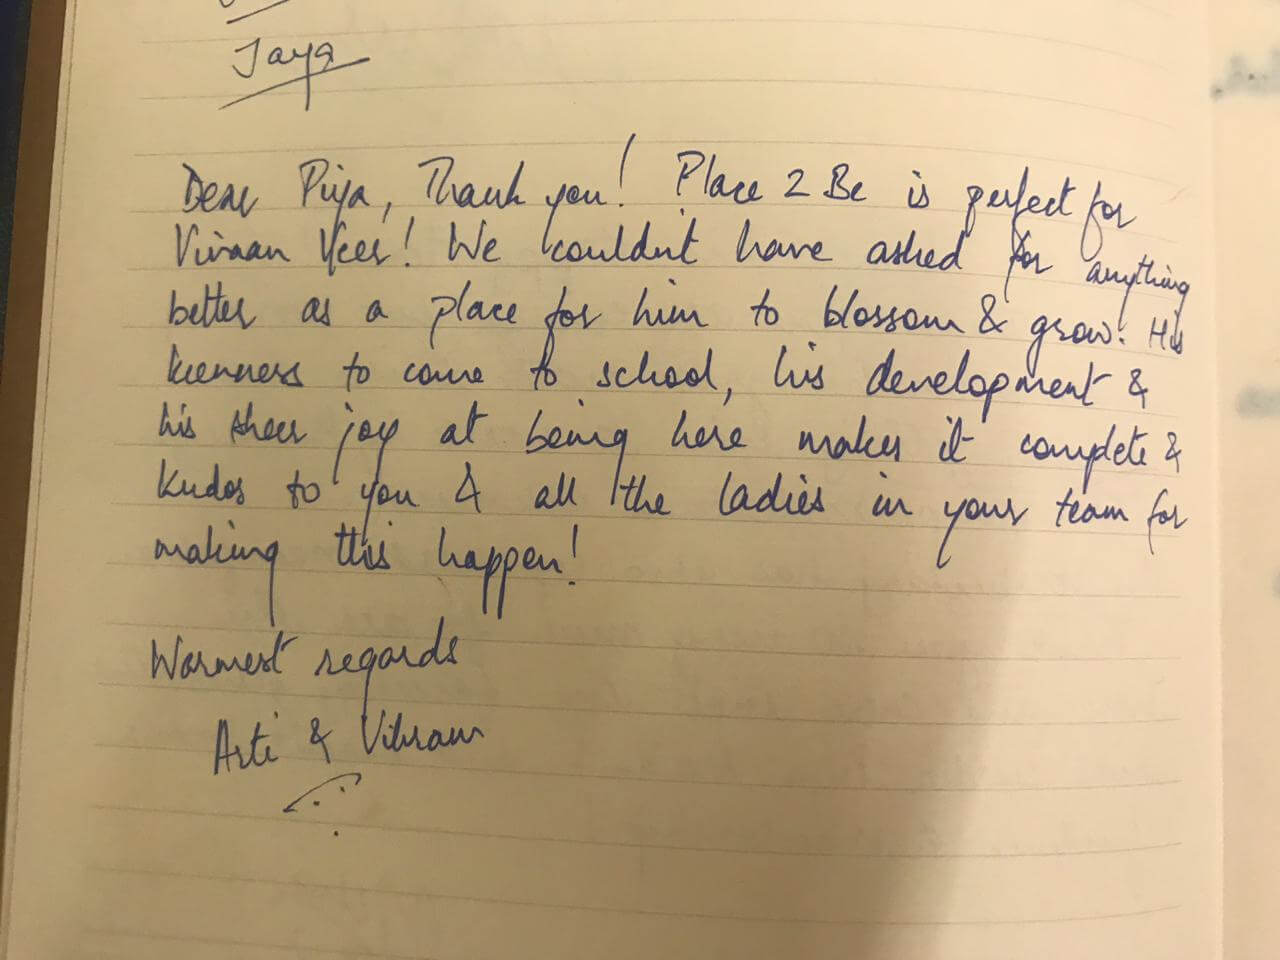 Jaya
Dear Priya, Thank you! Place 2 Be is perfect for
Vivaan Veer! We couldn't have asked for anything
better as a place for him to blossom & grow. His
keenness to come to school, his development &
his sheer joy at being here makes it complete &
kudos to you & all the ladies in your team for
making this happen!
Warmest regards
Arti & Vikram